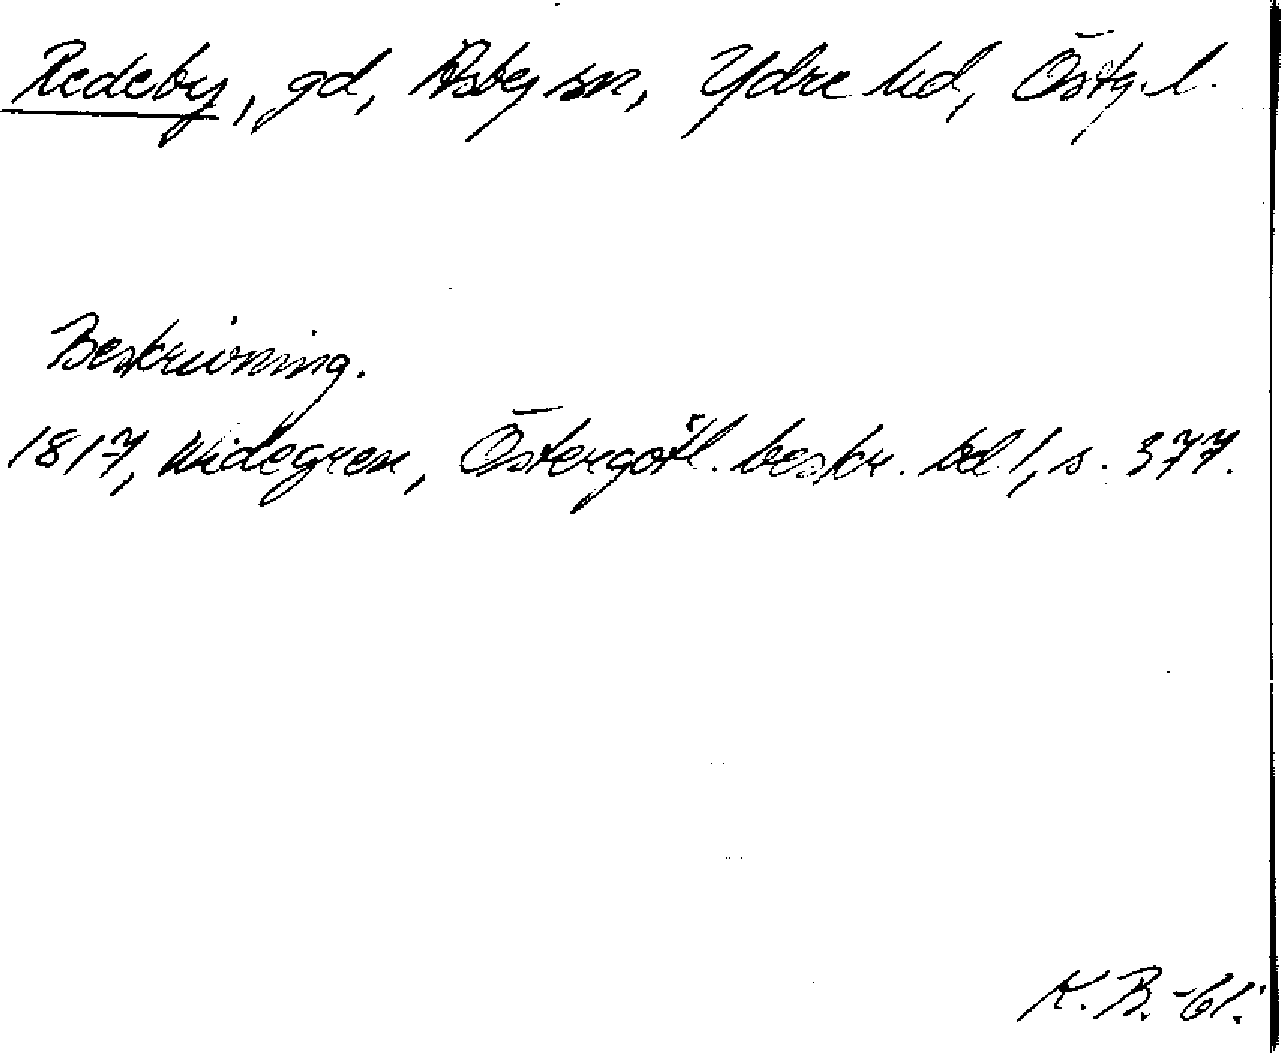 Redeby, gd, Asby sn, Ydre hd, Östg. l.
Beskrivning.
1817, Widegren, Östergötl. beskr. bd 1, s. 377.
K. B. -61.